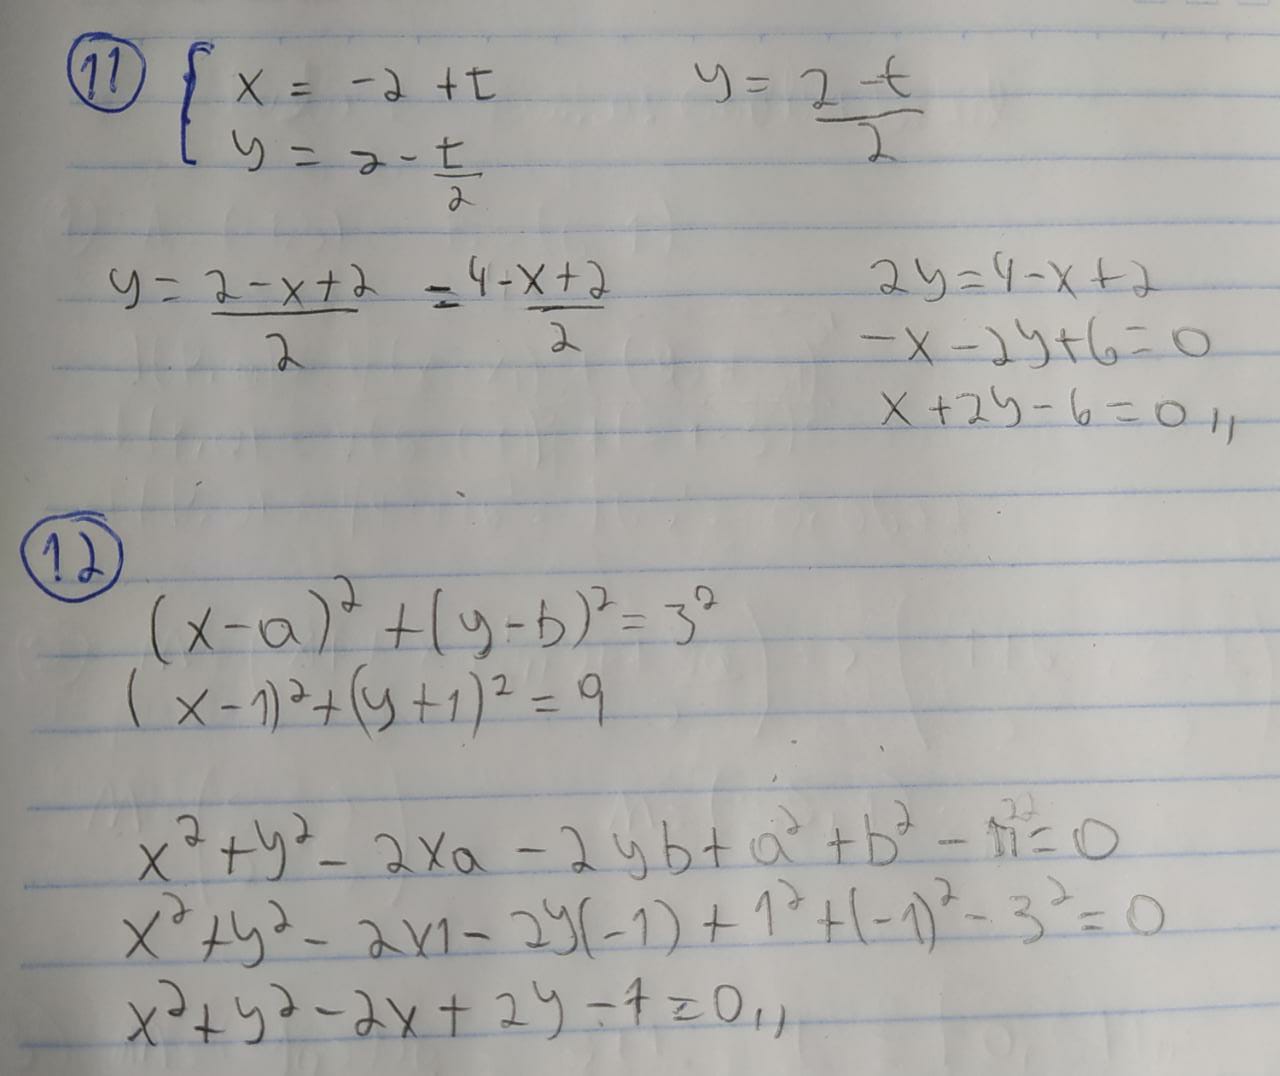 11 { x = -2 + t
y = 2 - t/2
y = (2 - t)/2
y = (2 - x + 2)/2 = 4 - (x + 2)/2
2y = 4 - x + 2
-x - 2y + 6 = 0
x + 2y - 6 = 0,,
12
(x - a)² + (y - b)² = 3²
(x - 1)² + (y + 1)² = 9
x² + y² - 2xa - 2yb + a² + b² - r² = 0
x² + y² - 2x1 - 2y(-1) + 1² + (-1)² - 3² = 0
x² + y² - 2x + 2y - 7 = 0,,